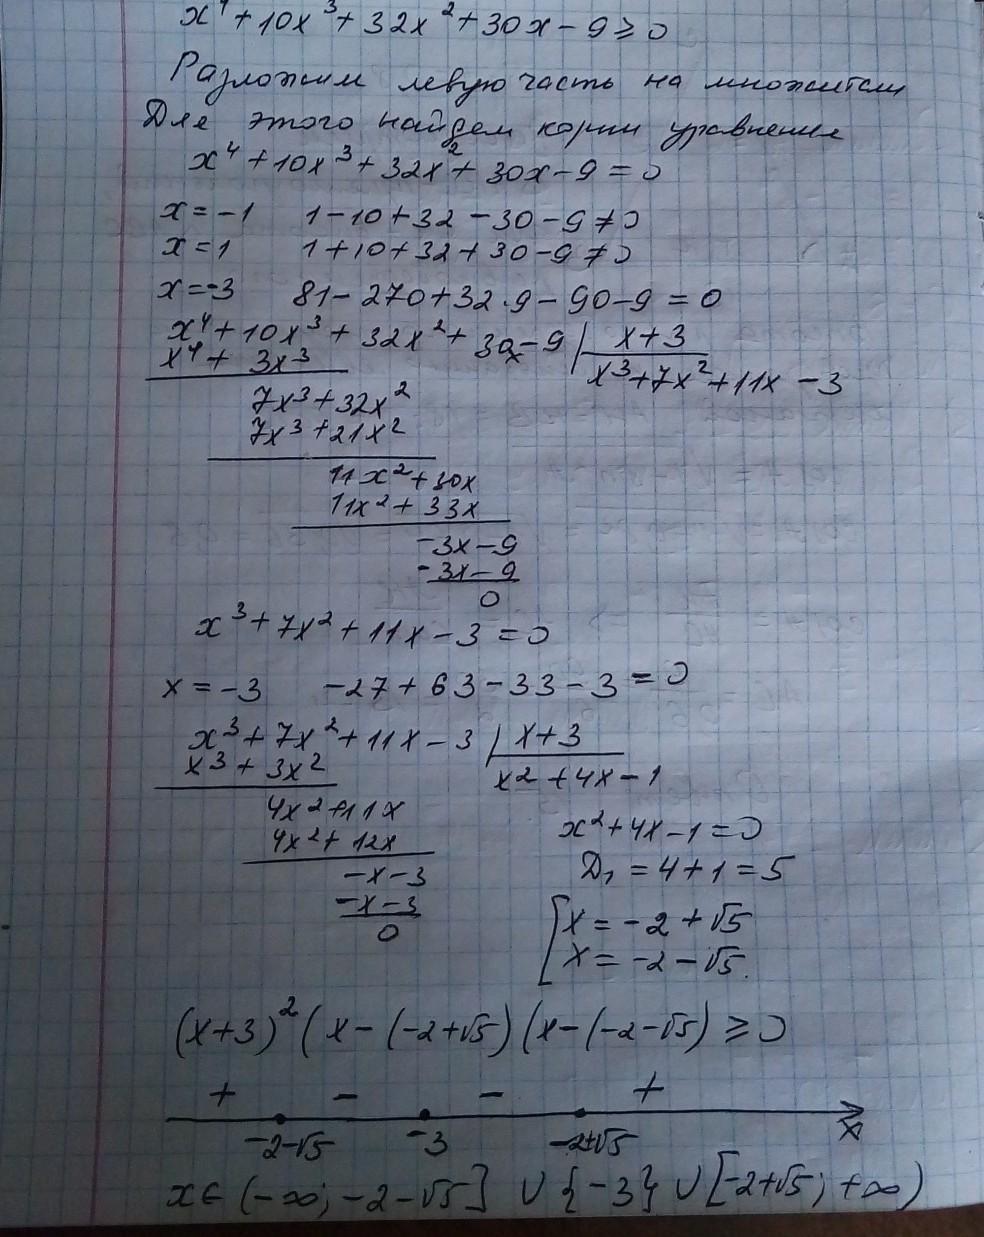 x⁴ + 10x³ + 32x² + 30x − 9 ≥ 0
Разложим левую часть на множители
Для этого найдем корни уравнения
x⁴ + 10x³ + 32x² + 30x − 9 = 0
x = −1 1 − 10 + 32 − 30 − 9 ≠ 0
x = 1 1 + 10 + 32 + 30 − 9 ≠ 0
x = −3 81 − 270 + 32·9 − 90 − 9 = 0
x⁴ + 10x³ + 32x² + 30x − 9 | x + 3
x⁴ + 3x³ x³ + 7x² + 11x − 3
7x³ + 32x²
7x³ + 21x²
11x² + 30x
11x² + 33x
−3x − 9
−3x − 9
0
x³ + 7x² + 11x − 3 = 0
x = −3 −27 + 63 − 33 − 3 = 0
x³ + 7x² + 11x − 3 | x + 3
x³ + 3x² x² + 4x − 1
4x² + 11x
4x² + 12x
−x − 3
−x − 3
0
x² + 4x − 1 = 0
D₁ = 4 + 1 = 5
[ x = −2 + √5
x = −2 − √5.
(x + 3)² (x − (−2 + √5) (x − (−2 − √5) ≥ 0
+ − − +
−2−√5 −3 −2+√5 x
x ∈ (−∞; −2 − √5] ∪ {−3} ∪ [−2 + √5; +∞)